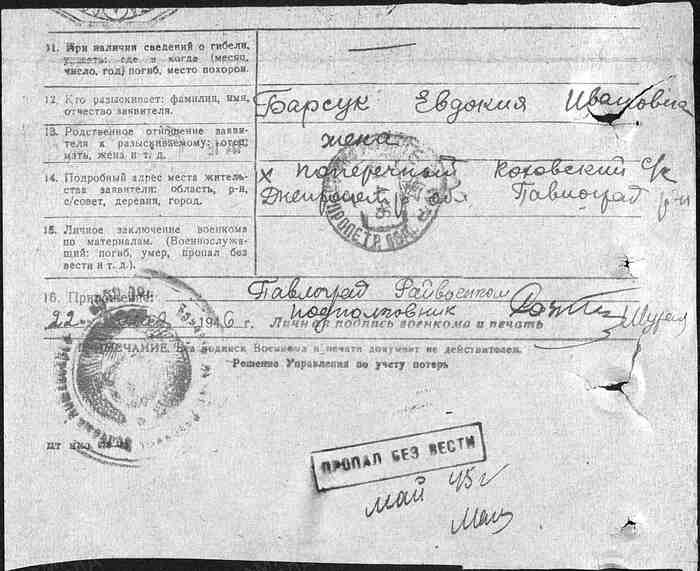 11. При наличии сведений о гибели,
указать: где и когда (месяц,
число, год) погиб, место похорон.
12. Кто разыскивает: фамилия, имя,
отчество заявителя.
Барсук Евдокия Ивановна
13. Родственное отношение заяви-
теля к разыскиваемому: отец,
мать, жена и т. д.
жена
14. Подробный адрес места житель-
ства заявителя: область, р-н,
с/совет, деревня, город.
х поперечный Коховский с/с
Павлоград р-н
15. Личное заключение военкома
по материалам. (Военнослужа-
щий: погиб, умер, пропал без
вести и т. д.).
16. Приложение:
Павлоград Райвоенком
подполковник
22 1946 г. Личная подпись военкома и печать
ПРИМЕЧАНИЕ. Без подписи Военкома и печати документ не действителен.
Решение Управления по учету потерь
ПРОПАЛ БЕЗ ВЕСТИ
май 45 г